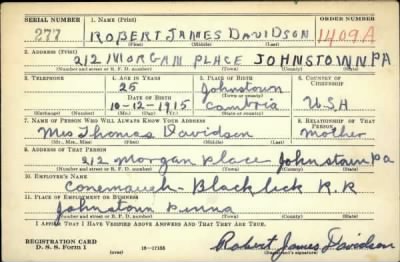 SERIAL NUMBER 1. NAME (Print) ORDER NUMBER
277 ROBERT JAMES DAVIDSON 1409A
(First) (Middle) (Last)
2. ADDRESS (Print)
212 MORGAN PLACE JOHNSTOWN PA
(Number and street or R. F. D. number) (Town) (County) (State)
3. TELEPHONE 4. AGE IN YEARS 5. PLACE OF BIRTH 6. COUNTRY OF CITIZENSHIP
25 Johnstown
(Town or county)
DATE OF BIRTH
10-12-1915 Cambria USA
(Exchange) (Number) (Mo.) (Day) (Yr.) (State or country)
7. NAME OF PERSON WHO WILL ALWAYS KNOW YOUR ADDRESS 8. RELATIONSHIP OF THAT PERSON
Mrs Thomas Davidson Mother
(Mr., Mrs., Miss) (First) (Middle) (Last)
9. ADDRESS OF THAT PERSON
212 Morgan Place Johnstown Pa
(Number and street or R. F. D. number) (Town) (County) (State)
10. EMPLOYER'S NAME
Conemaugh-Blacklick R.R
11. PLACE OF EMPLOYMENT OR BUSINESS
Johnstown Penna
(Number and street or R. F. D. number) (Town) (County) (State)
I AFFIRM THAT I HAVE VERIFIED ABOVE ANSWERS AND THAT THEY ARE TRUE.
REGISTRATION CARD
D. S. S. Form 1 (over) 16-17105 Robert James Davidson
(Registrant's signature)